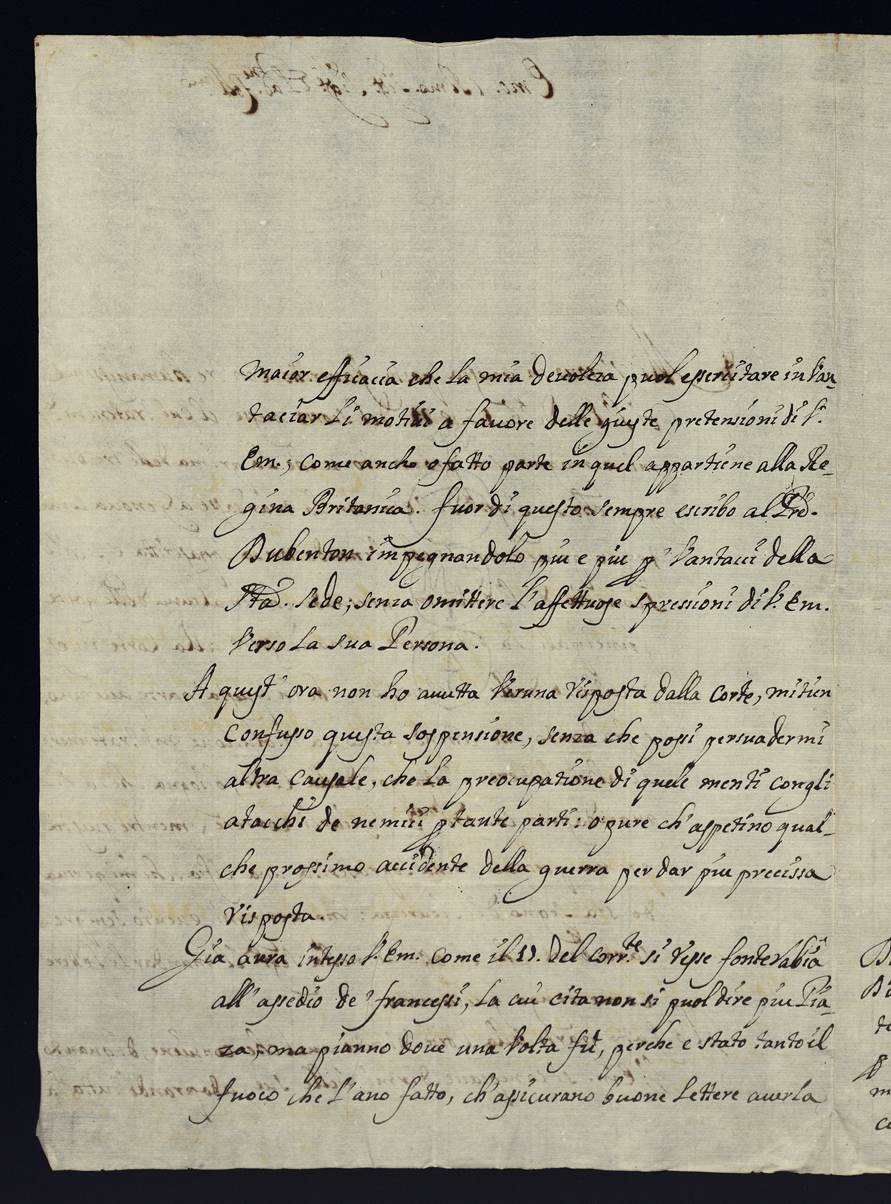 maior efficacia che la mia deuoteza puol essercitare in Van-
taciar li motiui a fauore delle giuste pretensioni di V.
Em.; come ancho o fatto parte in quel appartiene alla Re-
gina Britanica. fuor di questo sempre escribo al Prê.
Dubenton impegnandolo piu e piu p Vantacci della
Sta. Sede; senza omittere l'affettuose spressioni di V. Em.
Verso la sua Persona.
A quest' ora non ho auutta Veruna risposta dalla Corte, mi tien
confusso questa sospensione, senza che possi persuadermi
altra causale, che la preocupatione di quele menti con gli
atacchi de nemici p tante parti: o pure ch'aspetino qual-
che prossimo accidente della guerra per dar piu precissa
risposta.
Gia aura intesso V. Em. come il 17. del corrte. si resse fonterabia
all'assedio de' francessi, la cui cita non si puol dire piu Pia-
za, ma pianno doue una Volta fu, perche e stato tanto il
fuoco che l'ano fatto, ch'assicurano buone lettere auerla